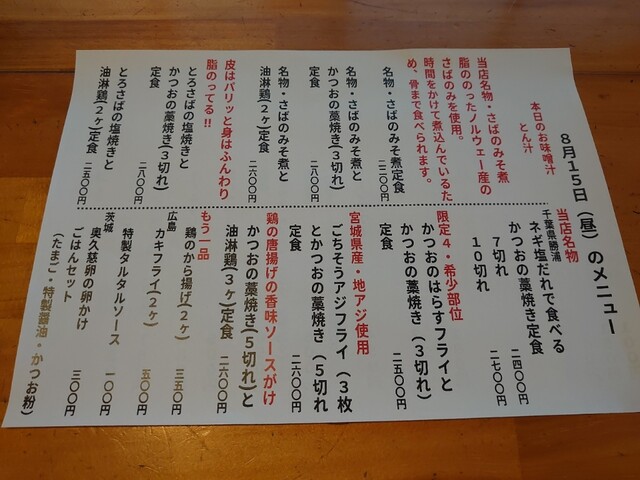 8月15日(昼)のメニュー
本日のお味噌汁
とん汁
当店名物・さばのみそ煮
脂ののったノルウェー産の
さばのみを使用。
時間をかけて煮込んでいるた
め、骨まで食べられます。
名物・さばのみそ煮定食
二二〇〇円
名物・さばのみそ煮と
かつおの藁焼き(3切れ)
定食
二八〇〇円
名物・さばのみそ煮と
油淋鶏(2ヶ)定食
二六〇〇円
皮はパリッと身はふんわり
脂のってる!!
とろさばの塩焼きと
かつおの藁焼き(3切れ)
定食
二八〇〇円
とろさばの塩焼きと
油淋鶏(2ヶ)定食
二五〇〇円
当店名物
千葉県勝浦
ネギ塩だれで食べる
かつおの藁焼き定食
7切れ
二四〇〇円
10切れ
二七〇〇円
限定4・希少部位
かつおのはらすフライと
かつおの藁焼き(3切れ)
定食
二五〇〇円
宮城県産・地アジ使用
ごちそうアジフライ(3枚
とかつおの藁焼き(5切れ
定食
二六〇〇円
鶏の唐揚げの香味ソースがけ
かつおの藁焼き(5切れ)と
油淋鶏(3ヶ)定食
二六〇〇円
もう一品
鶏のから揚げ(2ヶ)
三五〇円
広島
カキフライ(2ヶ)
五〇〇円
特製タルタルソース
一〇〇円
茨城
奥久慈卵の卵かけ
ごはんセット
三〇〇円
(たまご・特製醤油・かつお粉)